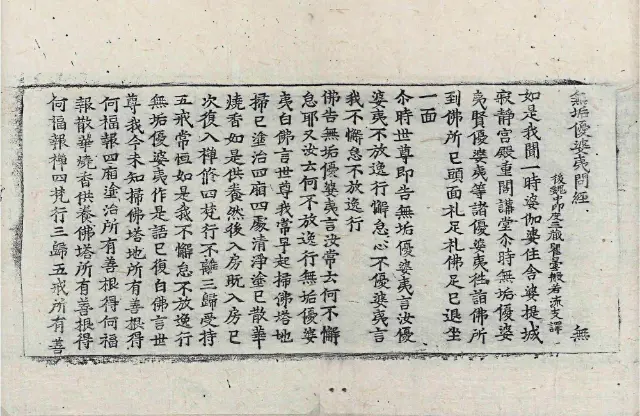 無垢優婆夷問經
無
後魏中印度三藏瞿曇般若流支譯
如是我聞一時婆伽婆住舍婆提城
寂靜宮殿重閣講堂尒時無垢優婆
夷賢優婆夷等諸優婆夷往詣佛所
到佛所已頭面礼足礼佛足已退坐
一面
尒時世尊即告無垢優婆夷言汝優
婆夷不放逸行懈怠心不優婆夷言
我不懈怠不放逸行
佛告無垢優婆夷言汝常云何不懈
怠耶又汝云何不放逸行無垢優婆
夷白佛言世尊我常早起掃佛塔地
掃已塗治四廂四處清淨塗已散華
燒香如是供養然後入房既入房已
次復入禪修四梵行不離三歸受持
五戒常恒如是我不懈怠不放逸行
無垢優婆夷作是語已復白佛言世
尊我今未知掃佛塔地所有善根得
何福報四廂塗治所有善根得何福
報散華燒香供養佛塔所有善根得
何福報禪四梵行三歸五戒所有善